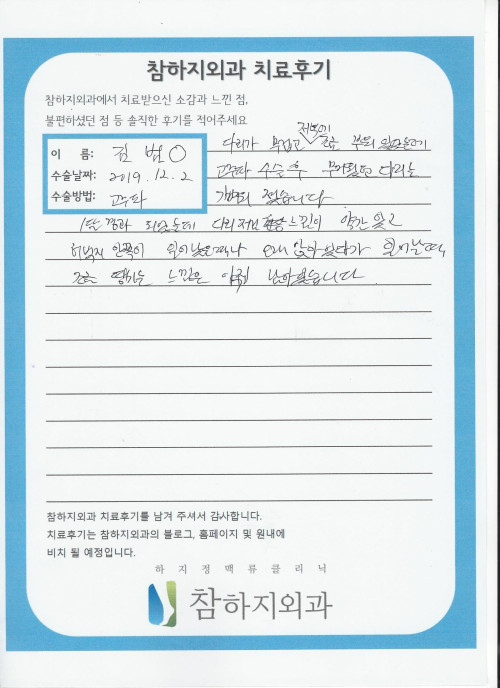 참하지외과 치료후기
참하지외과에서 치료받으신 소감과 느낀 점,
불편하셨던 점 등 솔직한 후기를 적어주세요
이 름: 김 범〇
수술날짜: 2019. 12. 2
수술방법: 고주파
저녁에
다리가 무겁고 조금 부터 있었는데
고주파 수술 후 무거웠던 다리는
가벼워 졌습니다
1달 경과 되었는데 다리 저림 느낌이 약간 있고
허벅지 안쪽이 오래 앉아 있다가 일어날때
조금 땡기는 느낌은 아직 남아 있습니다.
참하지외과 치료후기를 남겨 주셔서 감사합니다.
치료후기는 참하지외과의 블로그, 홈페이지 및 원내에
비치 될 예정입니다.
하지정맥류클리닉
참하지외과